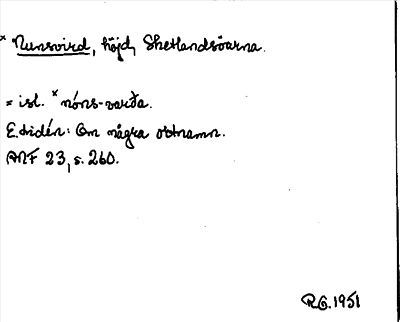 * Nunsvird, höjd, Shetlandsöarna.
= isl. *nóns-varða.
E. Lidén: Om några ortnamn.
ANF 23, s. 260.
R.G. 1951